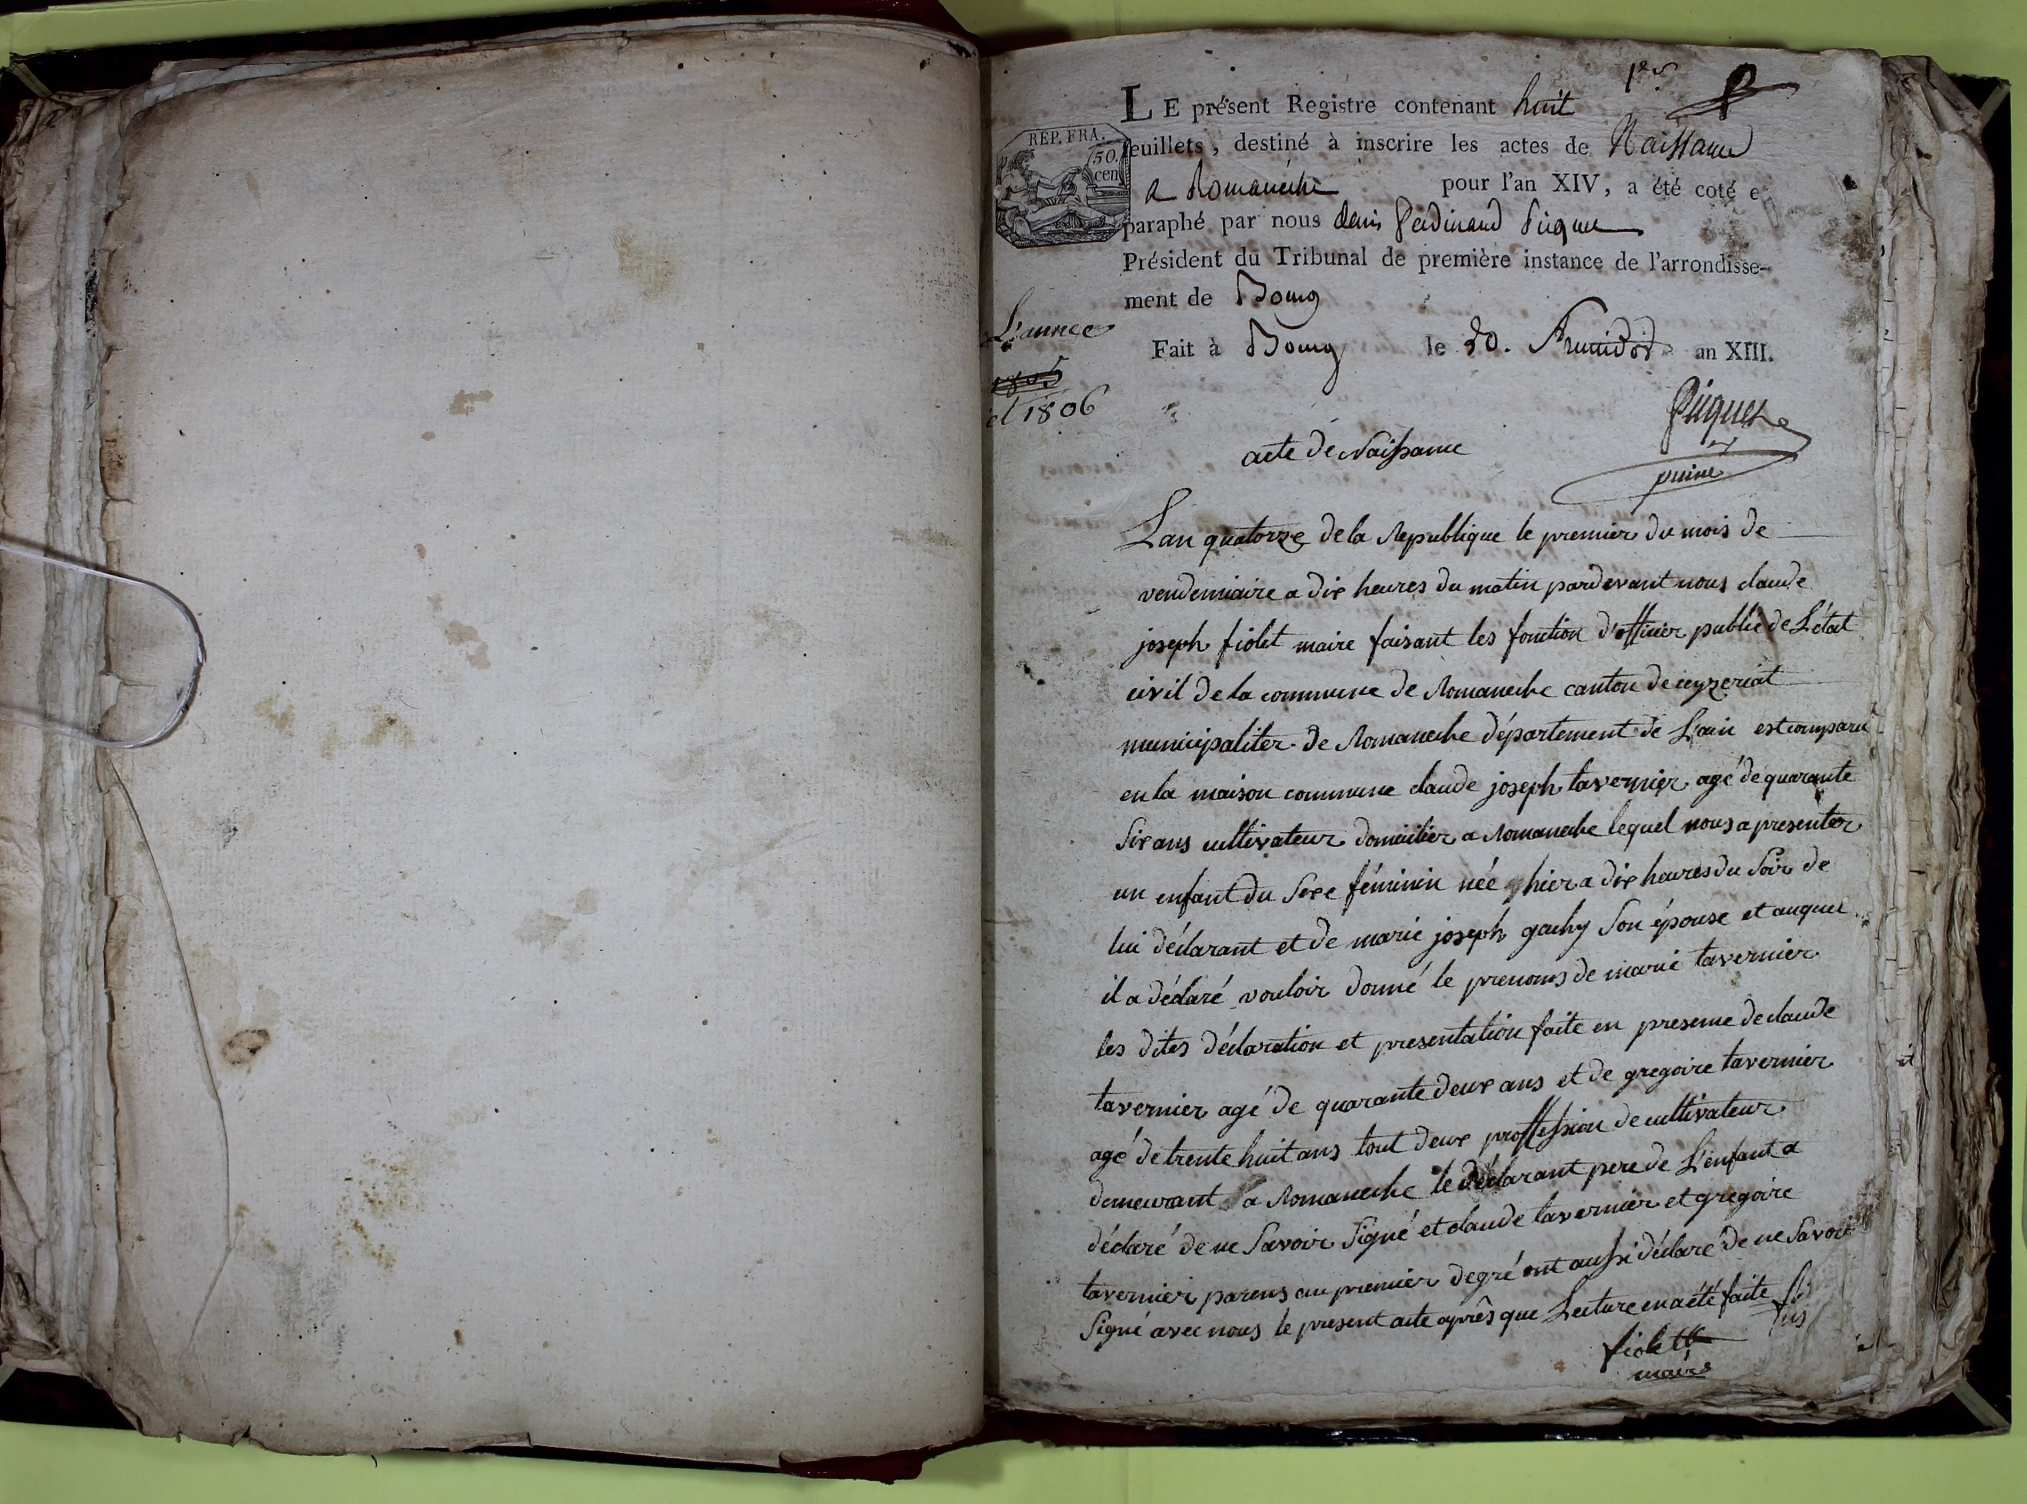 1er
LE présent Registre contenant huit
feuillets, destiné à inscrire les actes de Naissance
REP. FRA.
50.
cen
a Romanêche pour l'an XIV, a été coté e
paraphé par nous denis ferdinand Picquet
Président du Tribunal de première instance de l'arrondisse-
ment de Bourg
L'annee
Fait à Bourg le 30. Fructidor an XIII.
1805
et 1806
Picquet
acte de Naissance
puiné
Lan quatorze de la Republique le premier du mois de
vendemiaire a dix heures du matin pardevant nous claude
joseph fiolet maire faisant les fonction d'officier public de L'état
civil de la commune de Romaneche canton de ceyzeriat
municipaliter de Romaneche département de L'ain est comparu
en la maison commune claude joseph tavernier agé de quarante
six ans cultivateur domicilier a Romaneche lequel nous a presenter
un enfant du sexe féminin née hier a dix heures du soir de
lui déclarant et de marie joseph gachy son épouse et auquel
il a déclaré vouloir donné le prenoms de marie tavernier
les dites déclaration et presentation faite en presence de claude
tavernier agé de quarante deux ans et de gregoire tavernier
agé de trente huit ans tout deux proffession de cultivateur
demeurant a Romaneche le déclarant pere de L'enfant a
déclaré de ne savoir signé et claude tavernier et gregoire
tavernier parens au premier degré ont aussi déclaré de ne savoir
signé avec nous le present acte après que Lecture en a été faite
fiolet
maire